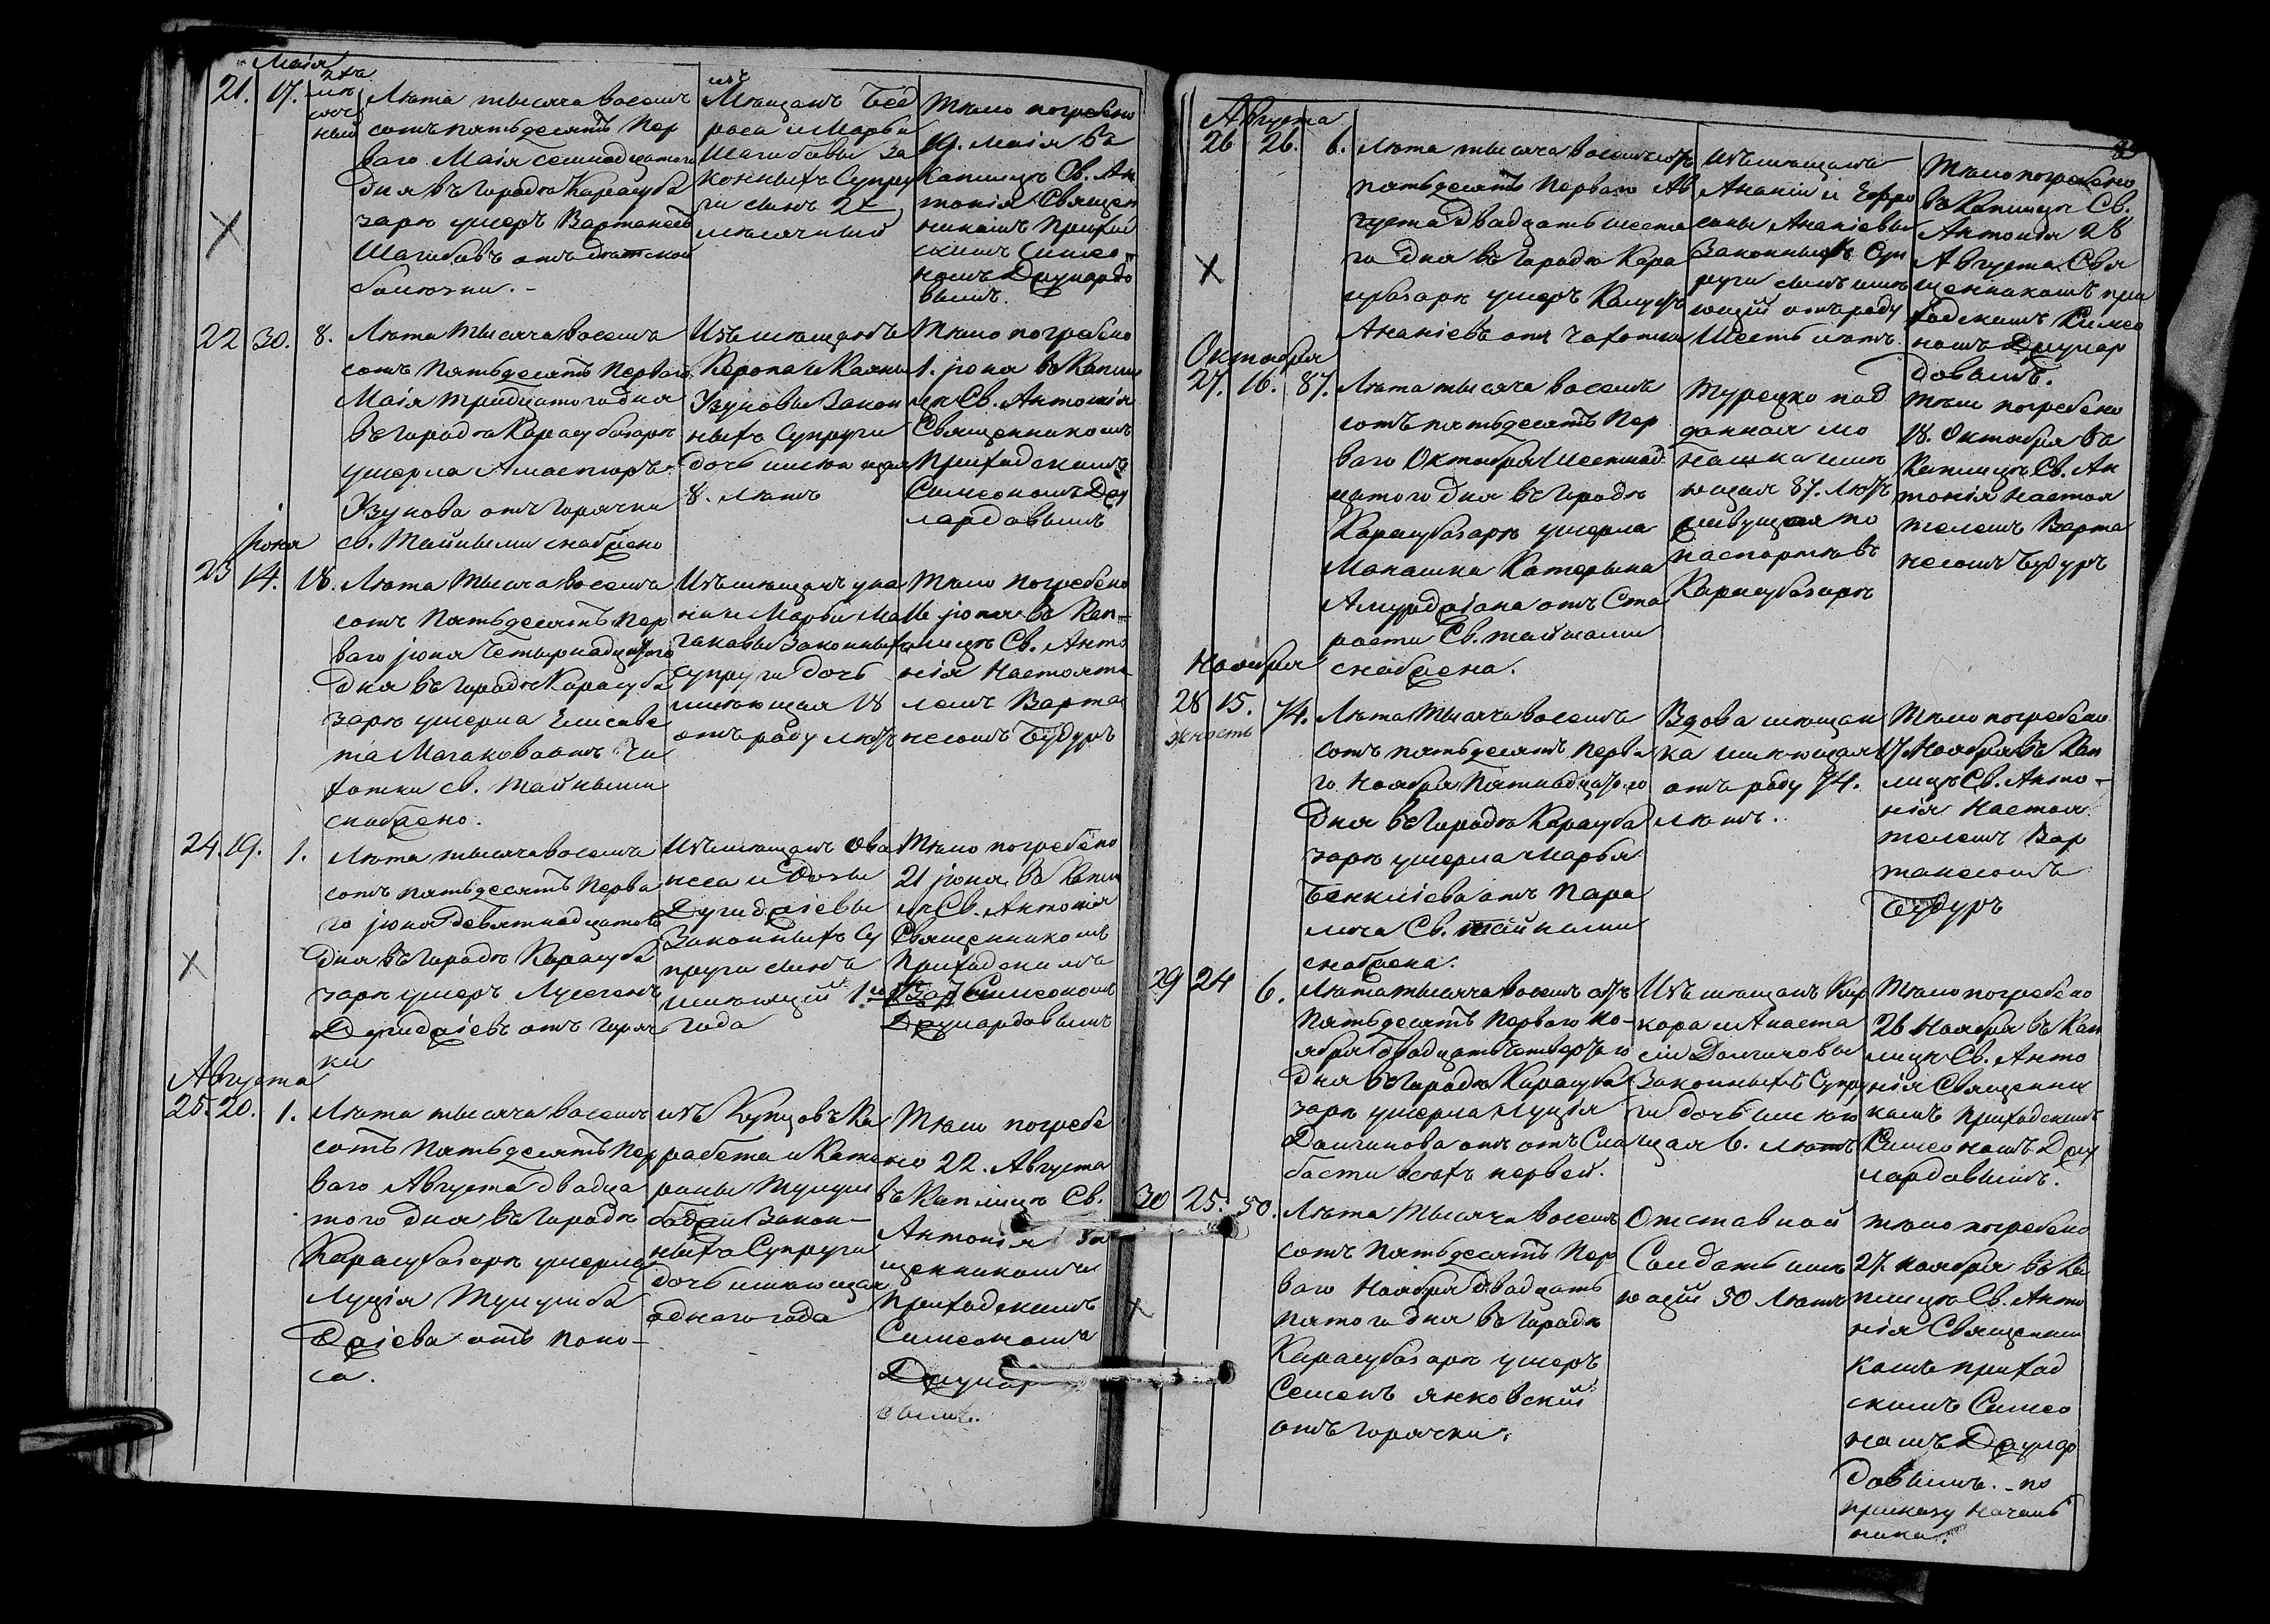 Маія
21. 17. 2хъ мѣсячный
Лѣта тысяча восемь
сотъ пятьдесятъ пер
ваго Маія семнадцатого
дня въ городѣ Карасуба
зарѣ умеръ Вартанесъ
Шагибовъ отъ дѣтской
болѣзни.
изъ
Мѣщанъ Бед
роса и Марѳи
Шагибовы за
конныхъ Супру
ги сынъ 2х
мѣсячный
Тѣло погребено
19. Маія въ
Каплицѣ Св. Ан
тонія Священ
никомъ Приход
скимъ Симео
номъ
вымъ.
22 30. 8.
Лѣта тысяча восемь
сотъ Пятьдесятъ Перваго
Маія тридцатого дня
въ городѣ Карасубазарѣ
умерла
Узунова отъ горячки
св. Тайными снабжено
Изъ мѣщанъ
Керопа и
Узуновы Закон
ныхъ Супруги
дочь имѣющая
8. лѣтъ
Тѣло погребено
1. іюня въ Капли
цѣ Св. Антонія
Священникомъ
Приходскимъ
Симеономъ Джу
лардовымъ
іюня
23 14. 18.
Лѣта Тысяча восемь
сотъ Пятьдесятъ Пер
ваго іюня Четырнадцатого
дня въ городѣ Карасуба
зарѣ умерла Елисаве
та отъ Ча
хотки св. Тайными
снабжено.
Изъ мѣщанъ
и Марѳи Ма
Законныхъ
Супруги дочь
имѣющая 18
отъ роду лѣтъ
Тѣло погребено
16 іюня въ Кап-
лицѣ Св. Анто
нія Настояте
лемъ Варта
несомъ Будуръ
24. 19. 1.
Лѣта тысяча восемь
сотъ пятьдесятъ Перва
го іюня девятнадцатого
дня въ городѣ Карасуба
зарѣ умеръ
отъ горяч
ки
Изъ мѣщанъ Ова
неса и
Законныхъ Су
пруги сынъ
имѣющій 1го
года
Тѣло погребено
21 іюня въ Капли
цѣ Св. Антонія
Священникомъ
Приходскимъ
Симеономъ
Джулардовымъ
Августа
25. 20. 1.
Лѣта тысяча восемь
сотъ Пятьдесятъ Пер
ваго Августа двадца
того дня въ городѣ
Карасубазарѣ умерла
Луція
отъ поно-
са.
изъ Купцовъ Ка
рабета и Кате
рины
Закон-
ныхъ Супруги
дочь имѣющая
одного года
Тѣло погребе
но 22. Августа
въ Каплицѣ Св.
Антонія
щенникомъ
Приходскимъ
Симеономъ
вымъ.
Августа
26 26. 6.
Лѣта тысяча восемьсотъ
пятьдесятъ Перваго Ав
густа двадцать шеста
го дня въ городѣ Кара
субазарѣ умеръ
Ананіевъ отъ чахотки
изъ мѣщанъ
Ананіи и Ефро
сины Ананіевы
Законныхъ Суп
руги сынъ имѣ
ющій отъ роду
Шесть лѣтъ
Тѣло погребено
въ Каплицѣ Св.
Антонія 28
Августа Свя
щенникомъ при
ходскимъ Симео
номъ Джулар
довымъ.
Октября
27. 16. 87.
Лѣта тысяча восемь
сотъ пятьдесятъ Пер
ваго Октября Шестнад
цатого дня въ городѣ
Карасубазарѣ умерла
Монашка Катерина
отъ Ста
рости Св. тайнами
снабжена.
Турецко под
данная мо
нашка имѣ
ющая 87. лѣтъ
живущая по
паспорту въ
Карасубазарѣ
Тѣло погребено
18. Октября въ
Каплицѣ Св. Ан
тонія Настоя
телемъ Варта
несомъ Будуръ
Ноября
28 15. 74.
Лѣта Тысяча восемь
сотъ пятьдесятъ перва
го Ноября Пятнадцатого
дня въ городѣ Карасуба
зарѣ умерла Марѳа
отъ Пара
лича Св. Тайнами
снабжена.
Вдова мѣщан
ка имѣющая
отъ роду 74.
лѣтъ.
Тѣло погребено
17 Ноября въ Кап
лицѣ Св. Анто-
нія Настоя
телемъ Вар
танесомъ
Будуръ
29 24 6.
Лѣта тысяча восемьсотъ
Пятьдесятъ Перваго Но-
ября двадцать четвертаго
дня въ городѣ Карасуба
зарѣ умерла Луція
Долгинова отъ отъ Сла
бости всѣхъ нервей.
Изъ мѣщанъ Кир
кора и Анаста
сіи Долгиновы
Законныхъ Супру
ги дочь имѣю
щая 6. лѣтъ
Тѣло погребено
26 Ноября въ Кап
лицѣ Св. Анто
нія Священни
комъ Приходскимъ
Симеономъ Джу
лардовымъ.
30 25. 50.
Лѣта Тысяча восемь
сотъ Пятьдесятъ Пер
ваго Ноября двадцать
пятого дня въ городѣ
Карасубазарѣ умеръ
Семенъ янковскій
отъ горячки.
Отставной
Солдатъ имѣ
ющій 50 лѣтъ
тѣло погребено
27. ноября въ Ка
плицѣ Св. Анто
нія Священни
комъ приход
скимъ Симео
номъ
довымъ. - по
приказу Началь
ника.